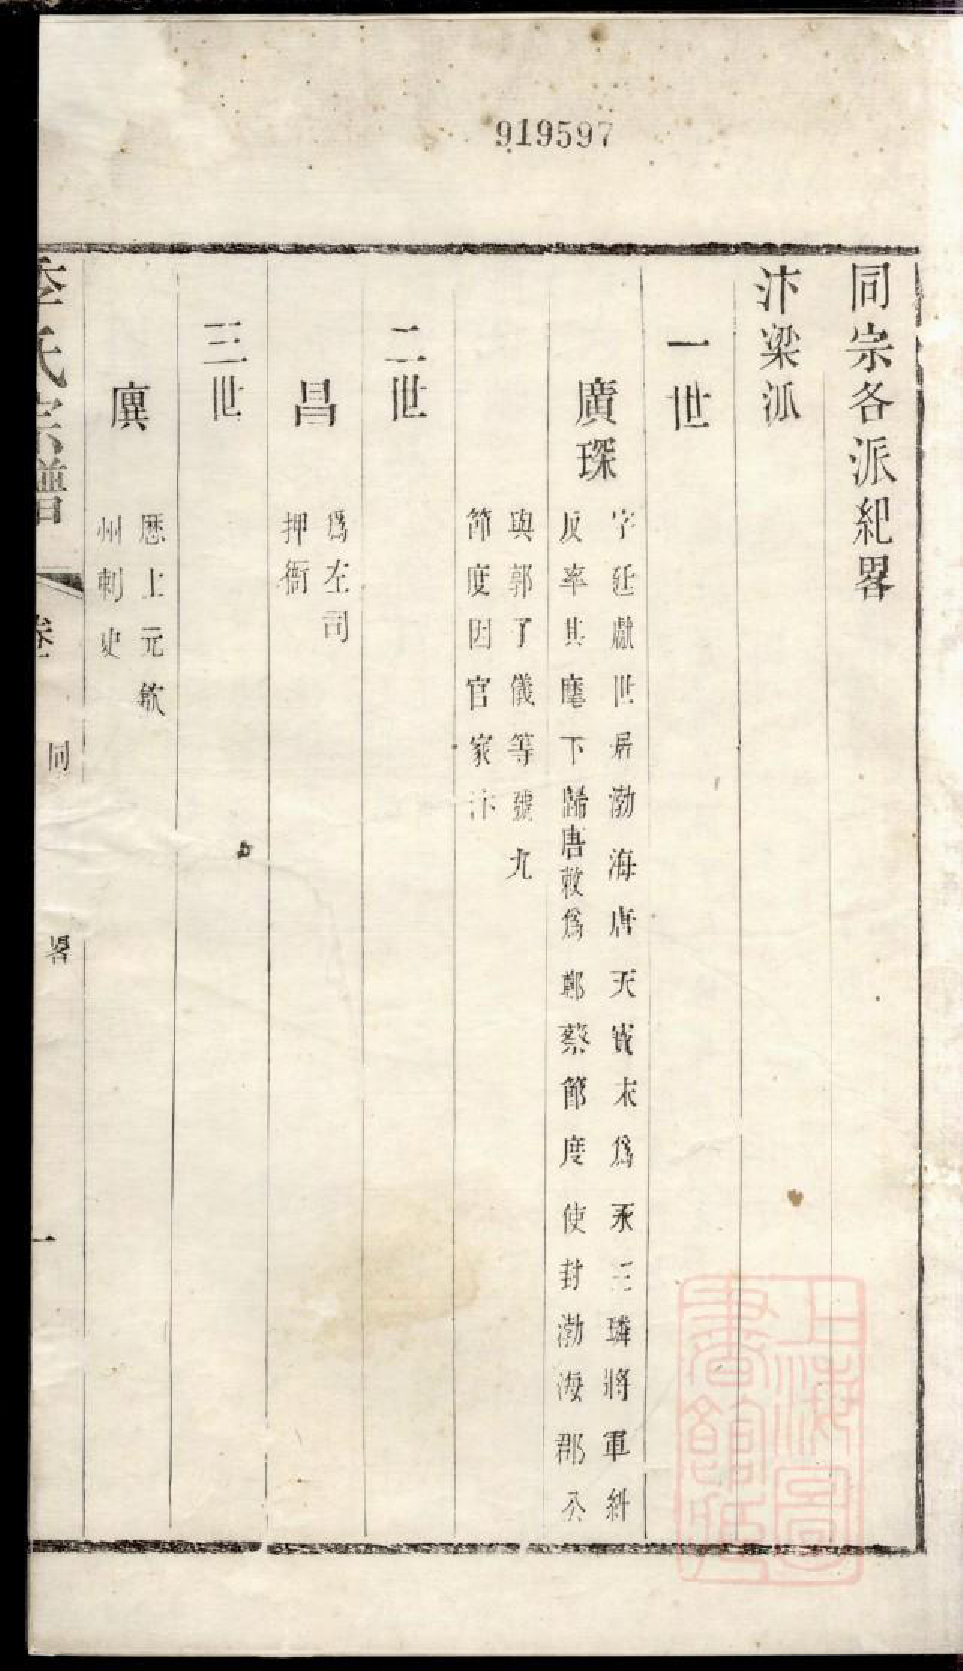 919597
同宗各派紀畧
汴梁派
一世
廣琛
字延獻世居渤海唐天寶末為永王璘將軍紏
反率其麾下歸唐敕為鄭蔡節度使封渤海郡公
與郭子儀等號九
節度因官家汴
二世
昌
為左司
押衙
三世
廙
歷上元歙
州刺史
季氏宗譜
卷
同
畧
一
上海圖
書館藏